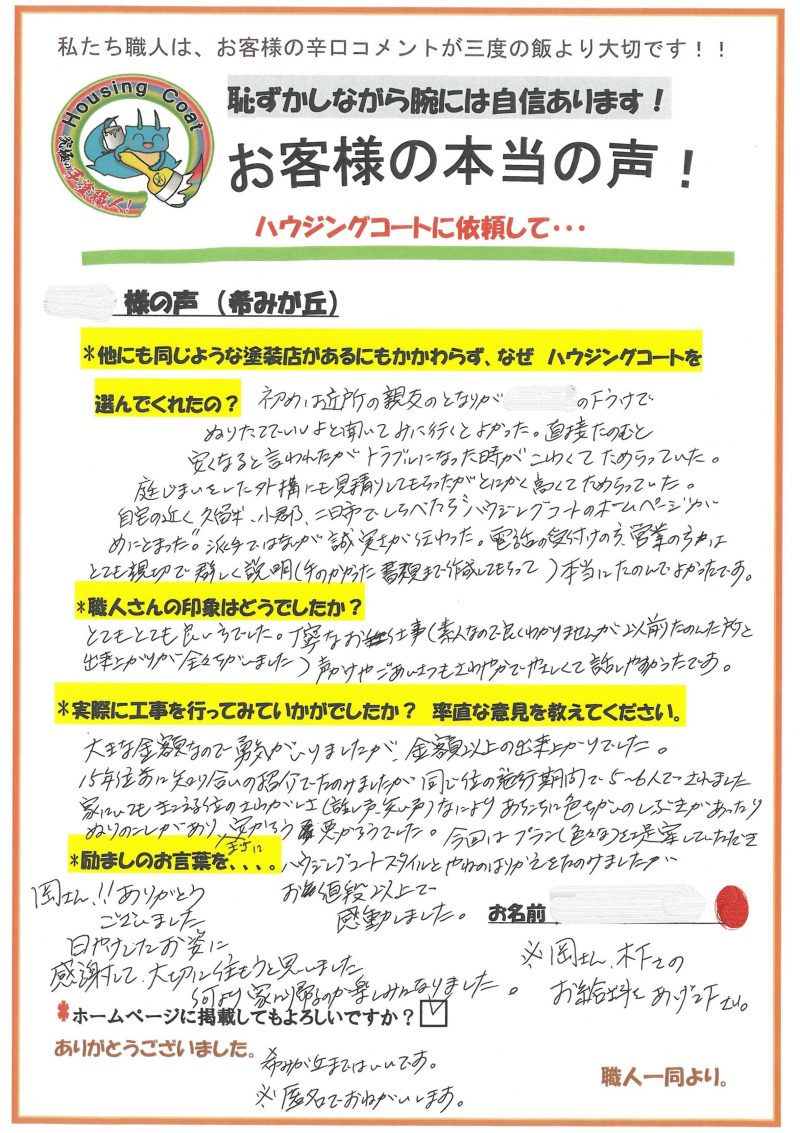 私たち職人は、お客様の辛口コメントが三度の飯より大切です！！
Housing Coat
恥ずかしながら腕には自信あります！
お客様の本当の声！
ハウジングコートに依頼して・・・
様の声（希みが丘）
*他にも同じような塗装店があるにもかかわらず、なぜ ハウジングコートを
選んでくれたの？ 初めは近所の親友のとなりが の下うけで
ぬりたてでいいよと聞いてみに行くとよかった。直接たのむと
安くなると言われたがトラブルになった時がこわくてためらっていた。
庭じまいをした外構にも見積りしてもらったがとにかく高くてためらっていた。
自宅の近く久留米、小郡、二日市でしらべたら"ハウジングコートのホームページが
めにとまった。"派手ではないが誠実さが伝わった。電話の受付けの方、営業の方は
とても親切で詳しく説明(手のかかった書類まで作成してもらって)本当にたのんでよかったです。
*職人さんの印象はどうでしたか？
とてもとても良い方でした。丁寧なお仕事(素人なので良くわかりませんが以前たのんだ所と
出来上がりが全々ちがいました)声かけやごあいさつもさわやかでやさしくて話しやすかったです。
*実際に工事を行ってみていかがでしたか？ 率直な意見を教えてください。
大きな金額なので勇気がいりましたが、金額以上の出来上がりでした。
15年位前に知り合いの紹介でたのみましたが同じ位の施行期間で5〜6人でされました
家にいてもきこえる位のさわがしさ(話し声、笑い声)なによりあちこちに色ちがいのしぶきがあったり
ぬりのこしがあり まさに 安かろう悪かろうでした。今回はプラン(色々な)を提案していただき
*励ましのお言葉を、、、、。 ハウジングコートスタイルとやねのはりかえをたのみましたが
お値段以上で
感動しました。
岡さん!!ありがとう
ございました
日やけしたお姿に
感謝して、大切に住もうと思いました
何より家に帰るのが楽しみになりました。
お名前
※岡さん、木下さの
お給料をあげて下さい。
*ホームページに掲載してもよろしいですか？☑
ありがとうございました。
希みが丘まではいいです。
※匿名でおねがいします。
職人一同より。